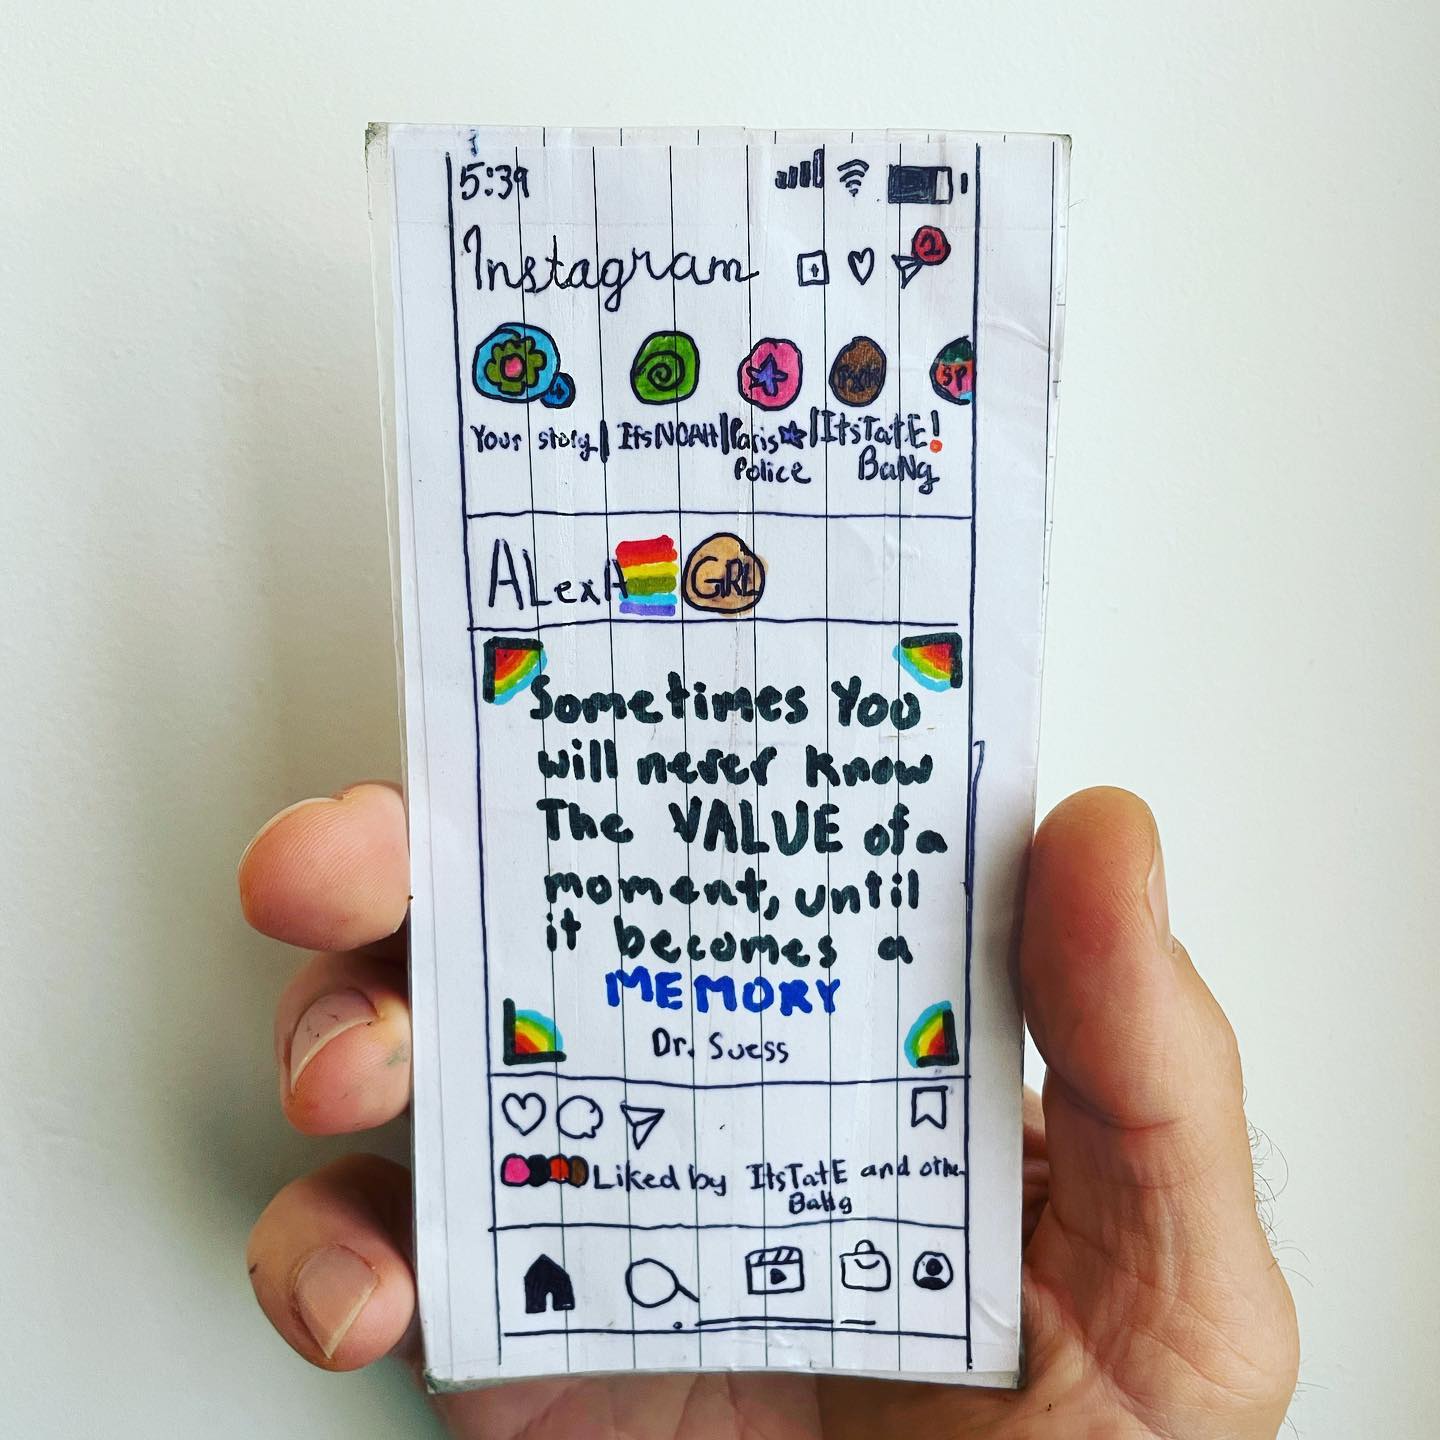 5:39
Instagram
2
SP
Your story | ItsNOAH | Paris | ItsTatE!
Police BaNg
ALexA GRL
Sometimes You
will never know
The VALUE of a
moment, until
it becomes a
MEMORY
Dr. Suess
Liked by ItsTatE and othe
BaNg